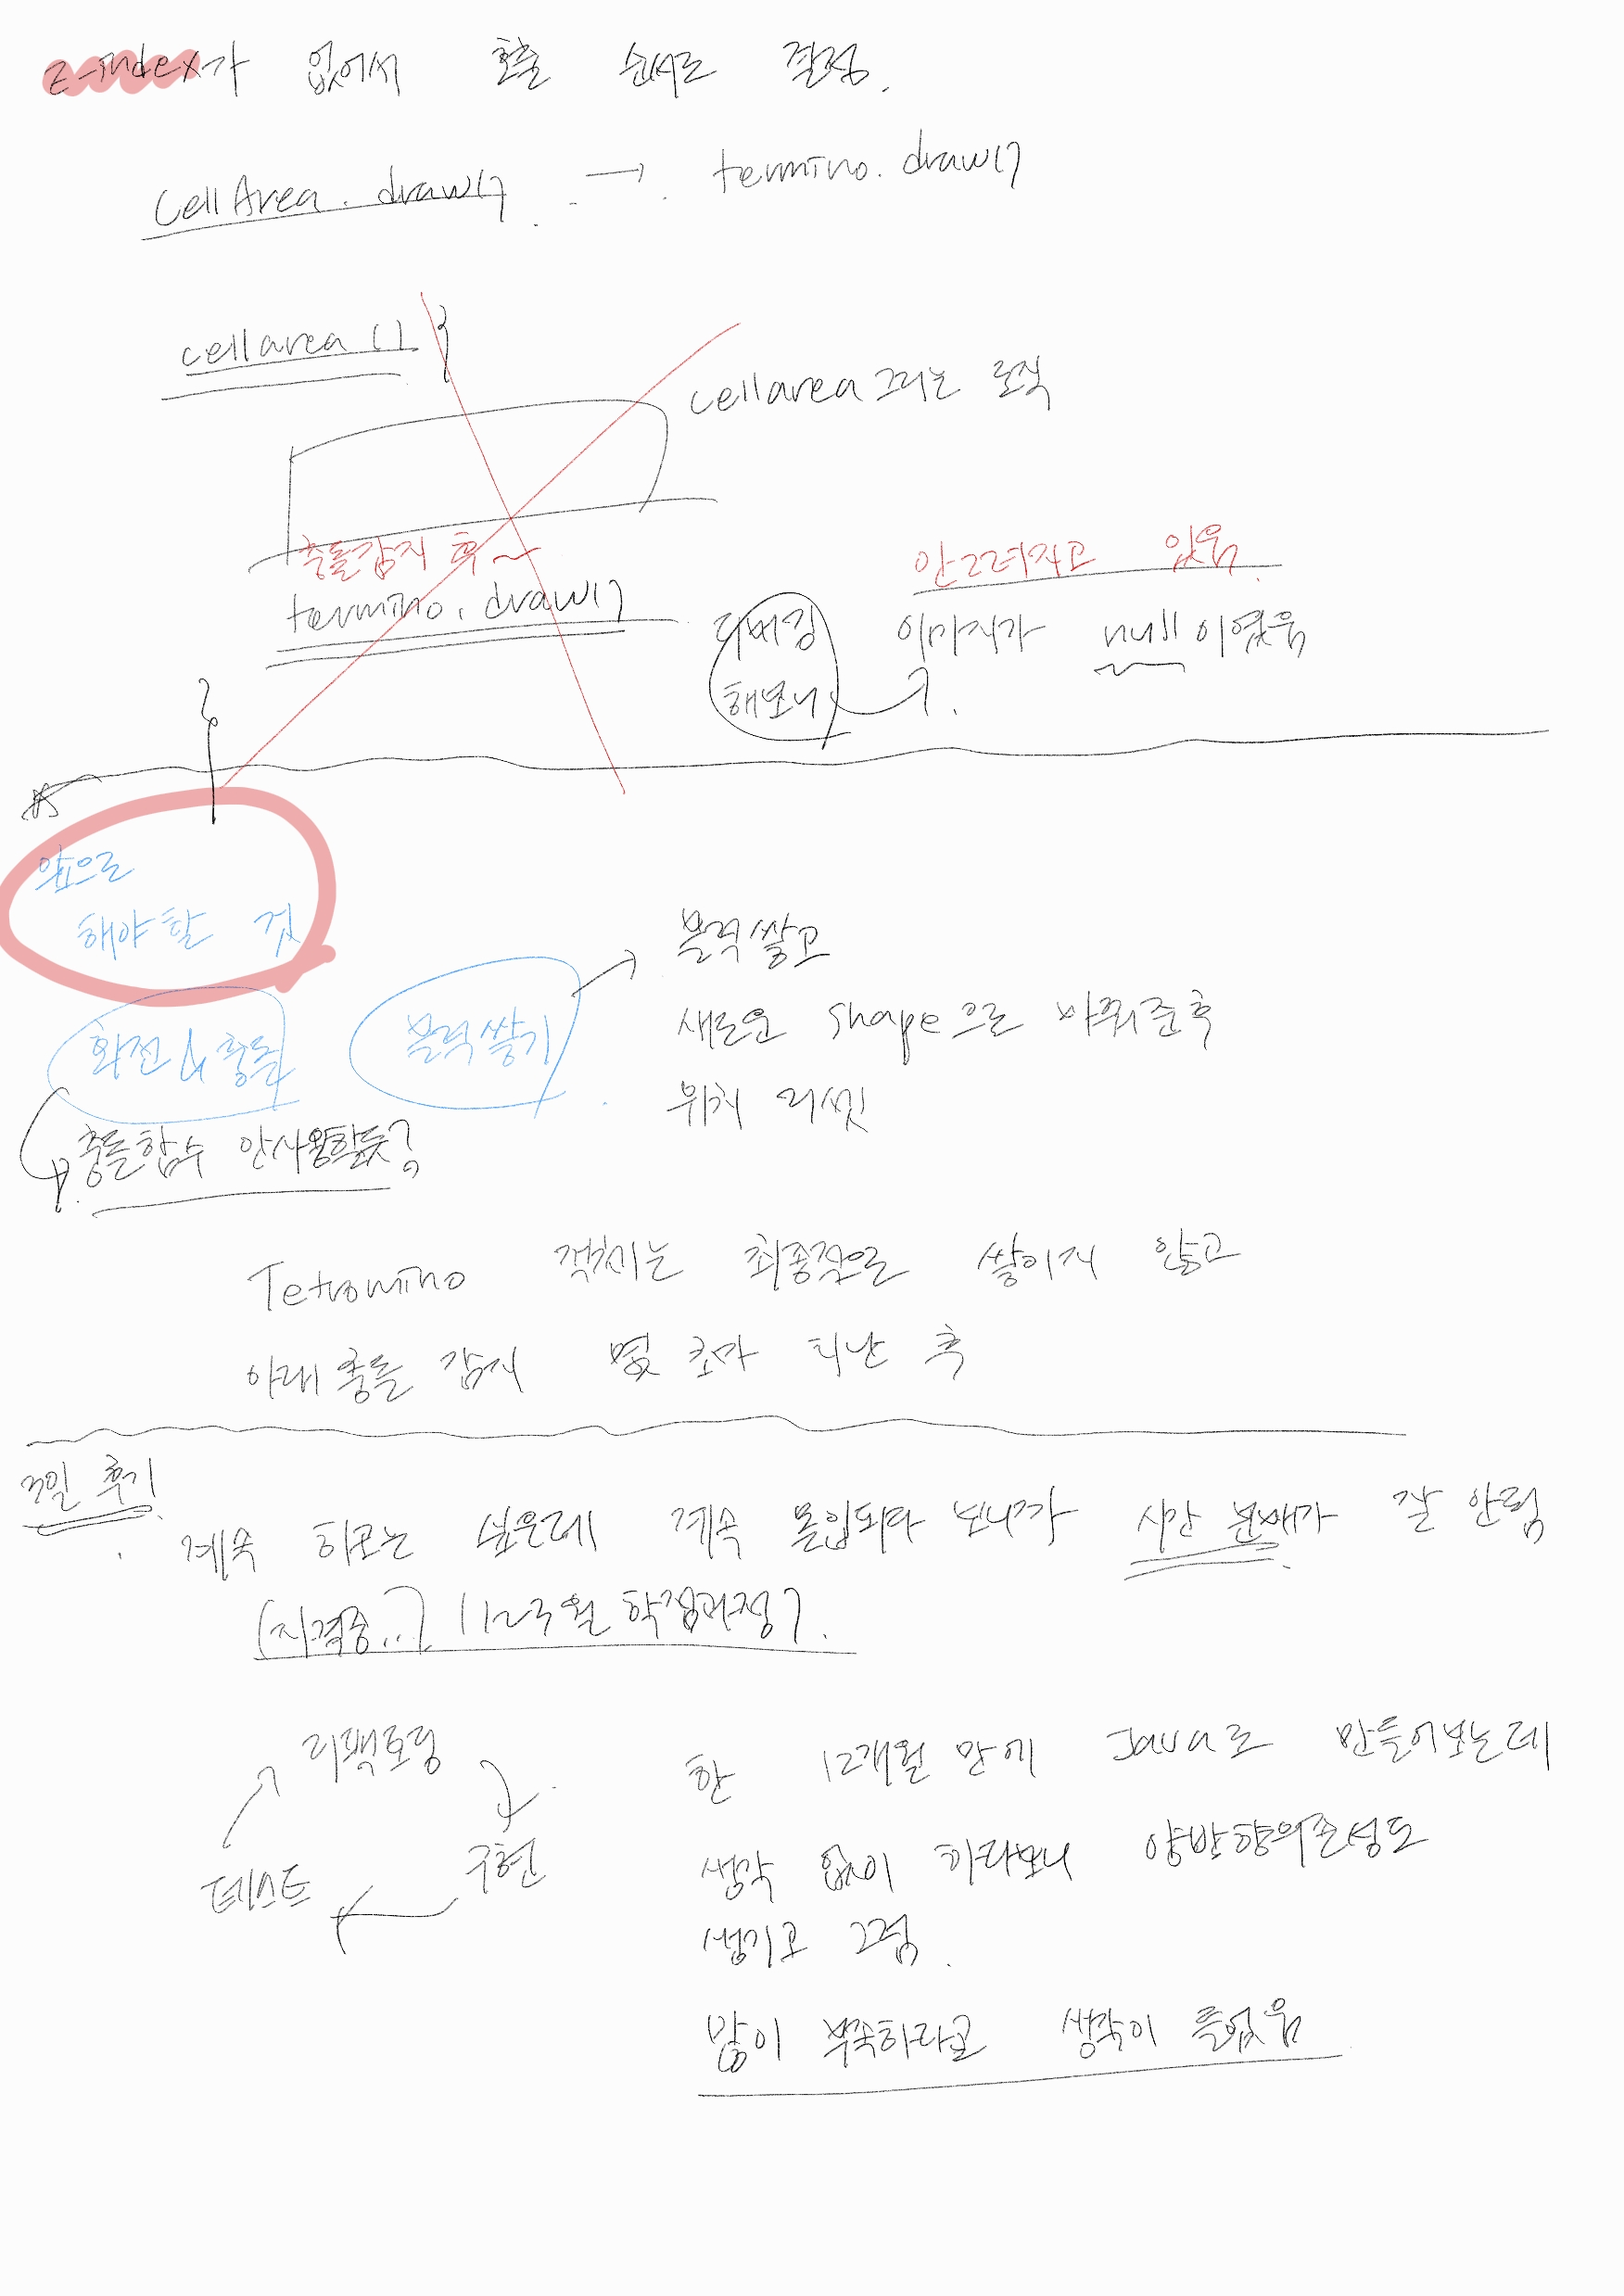 z-index가 없어서 호출 순서로 결정.
CellArea.draw() → termino.draw()
cellarea() {
cellarea 그리는 로직
충돌감지 후~
termino.draw()
}
안그려지고 있음.
디버깅 해보니
이미지가 null이였음
앞으로
해야할 것
회전 & 충돌
블럭쌓기
블럭쌓고
새로운 shape으로 바꿔준후
위치 리셋
충돌함수 안사용할듯?
Tetromino 객체는 최종적으로 쌓이지 않고
아래 충돌 감지 몇 초가 지난 후
3일 후기
계속 하고는 싶은데 계속 몰입되다 보니까 시간 분배가 잘 안됨
(자격증..) (123월 학점과정)
리팩토링
구현
테스트
한 12개월 만에 Java로 만들어보는데
생각 없이 하다보니 양방향의존성도
생기고 그럼.
많이 부족하다고 생각이 들었음